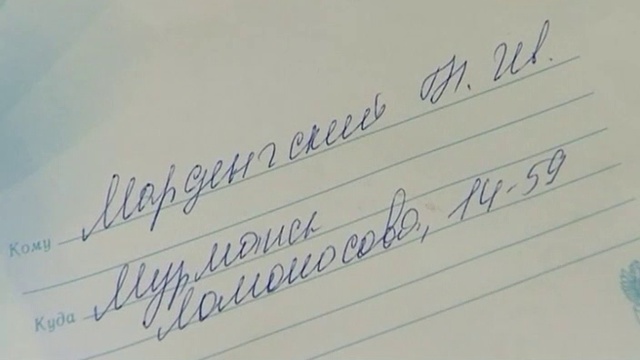 Кому Марденгский Вл. Ив.
Куда Мурманск
Ломоносова, 14-59